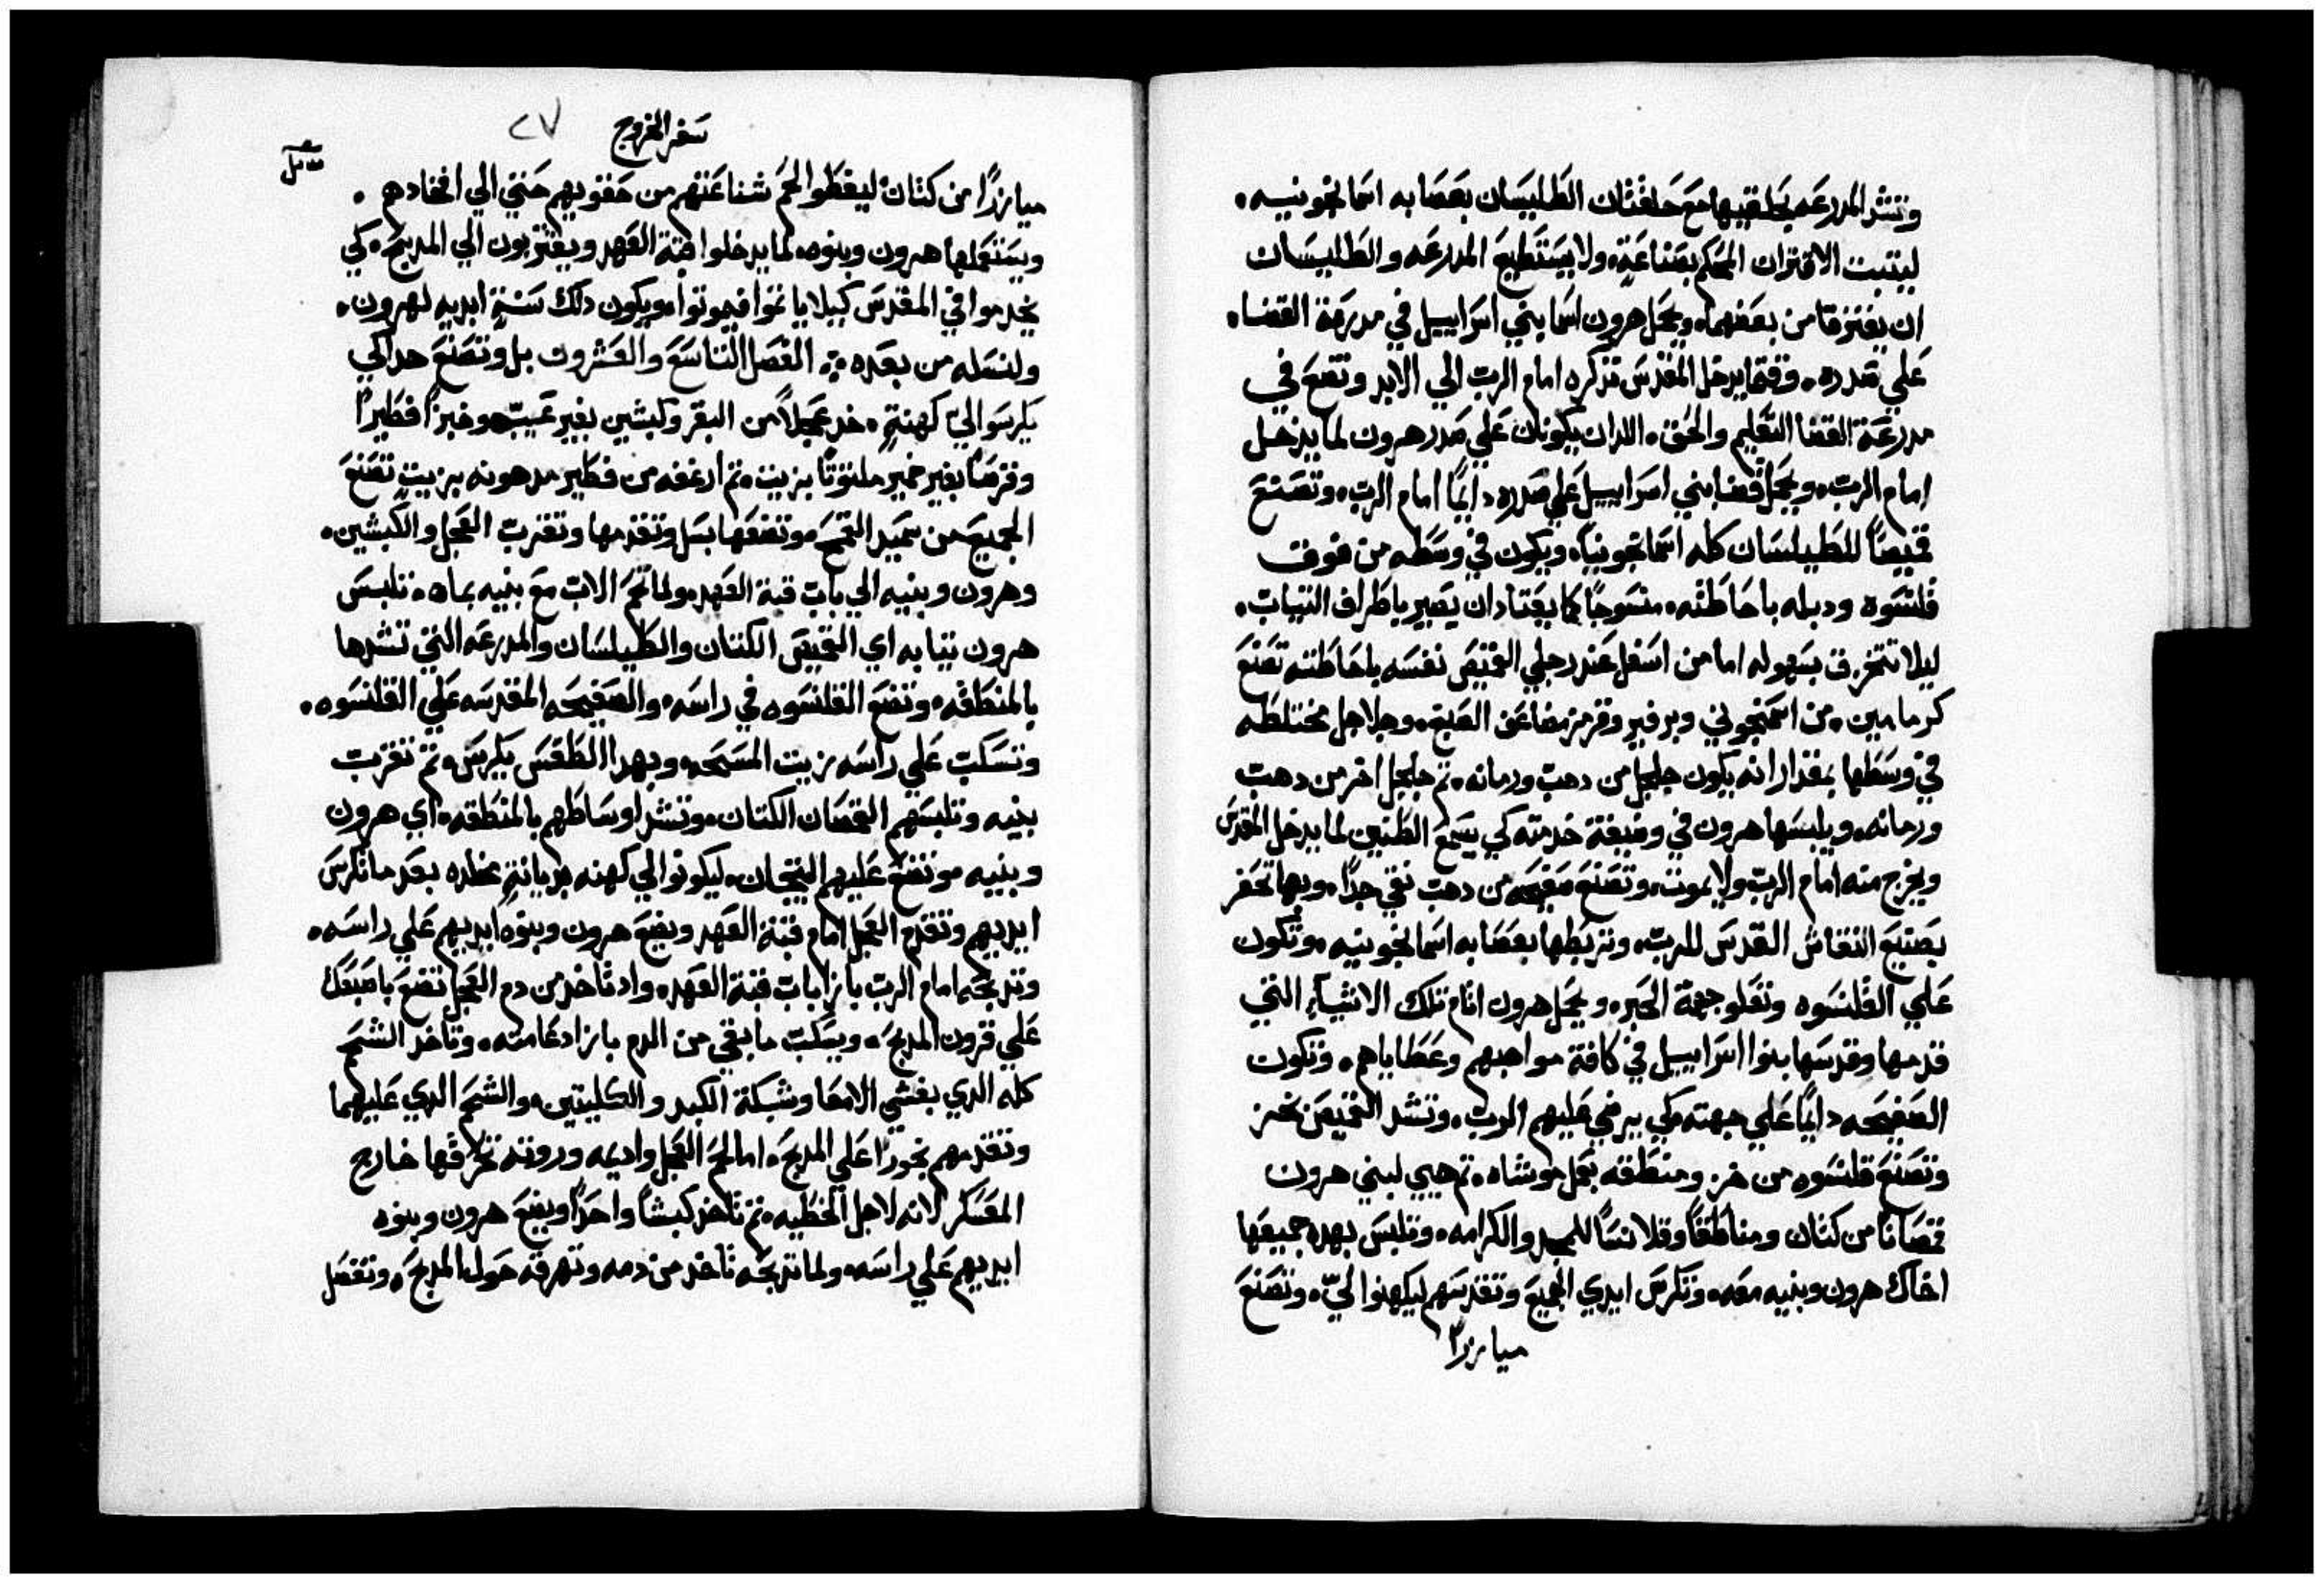 وتشد المدرعه بحلقتيها مع حلقتان الطليسان بعصابه اسمانجونيه.
ليتبت الاقتران المحكم بصناعةٍ. ولا يستطيع المدرعه والطليسان
ان يفترقا من بعضهما. ويحمل هرون اسما بني اسراييل في مدرعة القضا.
علي صدره. وقتما يدخل المقدس تذكره امام الرب الي الابد وتضع في
مدرعة القضا التعليم والحق. اللدان يكونان علي صدر هرون لما يدخل
امام الرب. ويحمل قضا بني اسراييل علي صدره دايمًا امام الرب. وتصنع
قميصًا للطيلسان كله اسمانجونيًا. ويكون في وسطه من فوق
قلنسوه ودبله باحاطته. منسوجًا كما يعتاد ان يصير باطراف التياب.
ليلا تتخرق بسهوله اما من اسفل عند رجلي القميص نفسه باحاطته تصنع
كرمامين. من اسمنجوني وبرفير وقرمز مضاعف الصبغ. وجلاجل مختلطه
في وسطها بمقدار انه يكون جلجل من دهب ورمانه. تم جلجل اخر من دهب
ورمانه. ويلبسها هرون في وضيفة خدمته كي يسمع الطنين لما يدخل المقدس
ويخرج منه امام الرب ولا يموت. وتصنع صفيحه من دهب نقي جدًا. وبها تحفر
بصنيع النقاش القدس للرب. وتربطها بعصابه اسمانجونيه. وتكون
علي القلنسوه وتعلو جبهة الحبر. ويحمل هرون اتام تلك الاشيآء التي
قدمها وقدسها بنوا اسراييل في كافة مواهبهم وعطاياهم. وتكون
الصفيحه دايمًا علي جبهته كي يرضي عليهم الرب. وتشد القميص بخز
وتصنع قلنسوه من خز ومنطقه بعمل موشاه. تم هيي لبني هرون
قمصانًا من كتان ومناطقًا وقلانسًا للمجد والكرامه. وتلبس بهده جميعها
اخاك هرون وبنيه معه. وتكرس ايدي الجميع وتقدسهم ليكهنوا ليّ. وتصنع
ميازرًا
سفر الخروج ٢٧
ميازرًا من كتان ليغطوا لحم شناعتهم من حقويهم حتي الي افخادهم.
ويستعملها هرون وبنوه لما يدخلوا قبة العهد ويقتربون الي المدبح. كي
يخدموا في المقدس كيلا ياتموا فيموتوا. ويكون دلك سنةٍ ابديه لهرون.
ولنسله من بعده. الفصل التاسع والعشرون بل وتصنع هدا كي
يكرسوا اليّ كهنةٍ. خد عجلاً من البقر وكبشين بغير عيب. وخبزًا فطيرًا
وقرصًا بغير خمير ملتوتًا بزيت. تم ارغفه من فطير مدهونه بزيت تصنع
الجميع من سميد القمح. وتضعها بسل وتقدمها وتقرب العجل والكبشين.
وهرون وبنيه الي باب قبة العهد. ولما تحم الاب مع بنيه بماه. تلبس
هرون تيابه اي القميص الكتان والطيلسان والمدرعه التي تشدها
بالمنطقه. وتضع القلنسوه في راسه. والصفيحه المقدسه علي القلنسوه.
وتسكب علي راسه زيت المسحه. وبهدا الطقس يكرس. تم تقرب
بنيه وتلبسهم القمصان الكتان. وتشد اوساطهم بالمنطقه. اي هرون
وبنيه وتضع عليهم التيجان. ليكونوا لي كهنه بديانةٍ مخلده بعد ما تكرس
ايديهم وتقدم العجل امام قبة العهد ويضع هرون وبنوه ايديهم علي راسه.
وتدبحه امام الرب بازا باب قبة العهد. واد تاخد من دم العجل تضع باصبعك
علي قرون المدبح. ويسكب ما بقي من الدم بازا دعامته. وتاخد الشحم
كله الدي يغشي الامعا وشبكة الكبد والكليتين. والشحم الدي عليهما
وتقدمهم بخورًا علي المدبح. اما لحم العجل واديمه وروته تحرقها خارج
المعسكر لانه لاجل الخطيه. تم تاخد كبشًا واحدًا ويضع هرون وبنوه
ايديهم علي راسه. ولما تدبحه تاخد من دمه وتهرقه حول المدبح. وتفصل